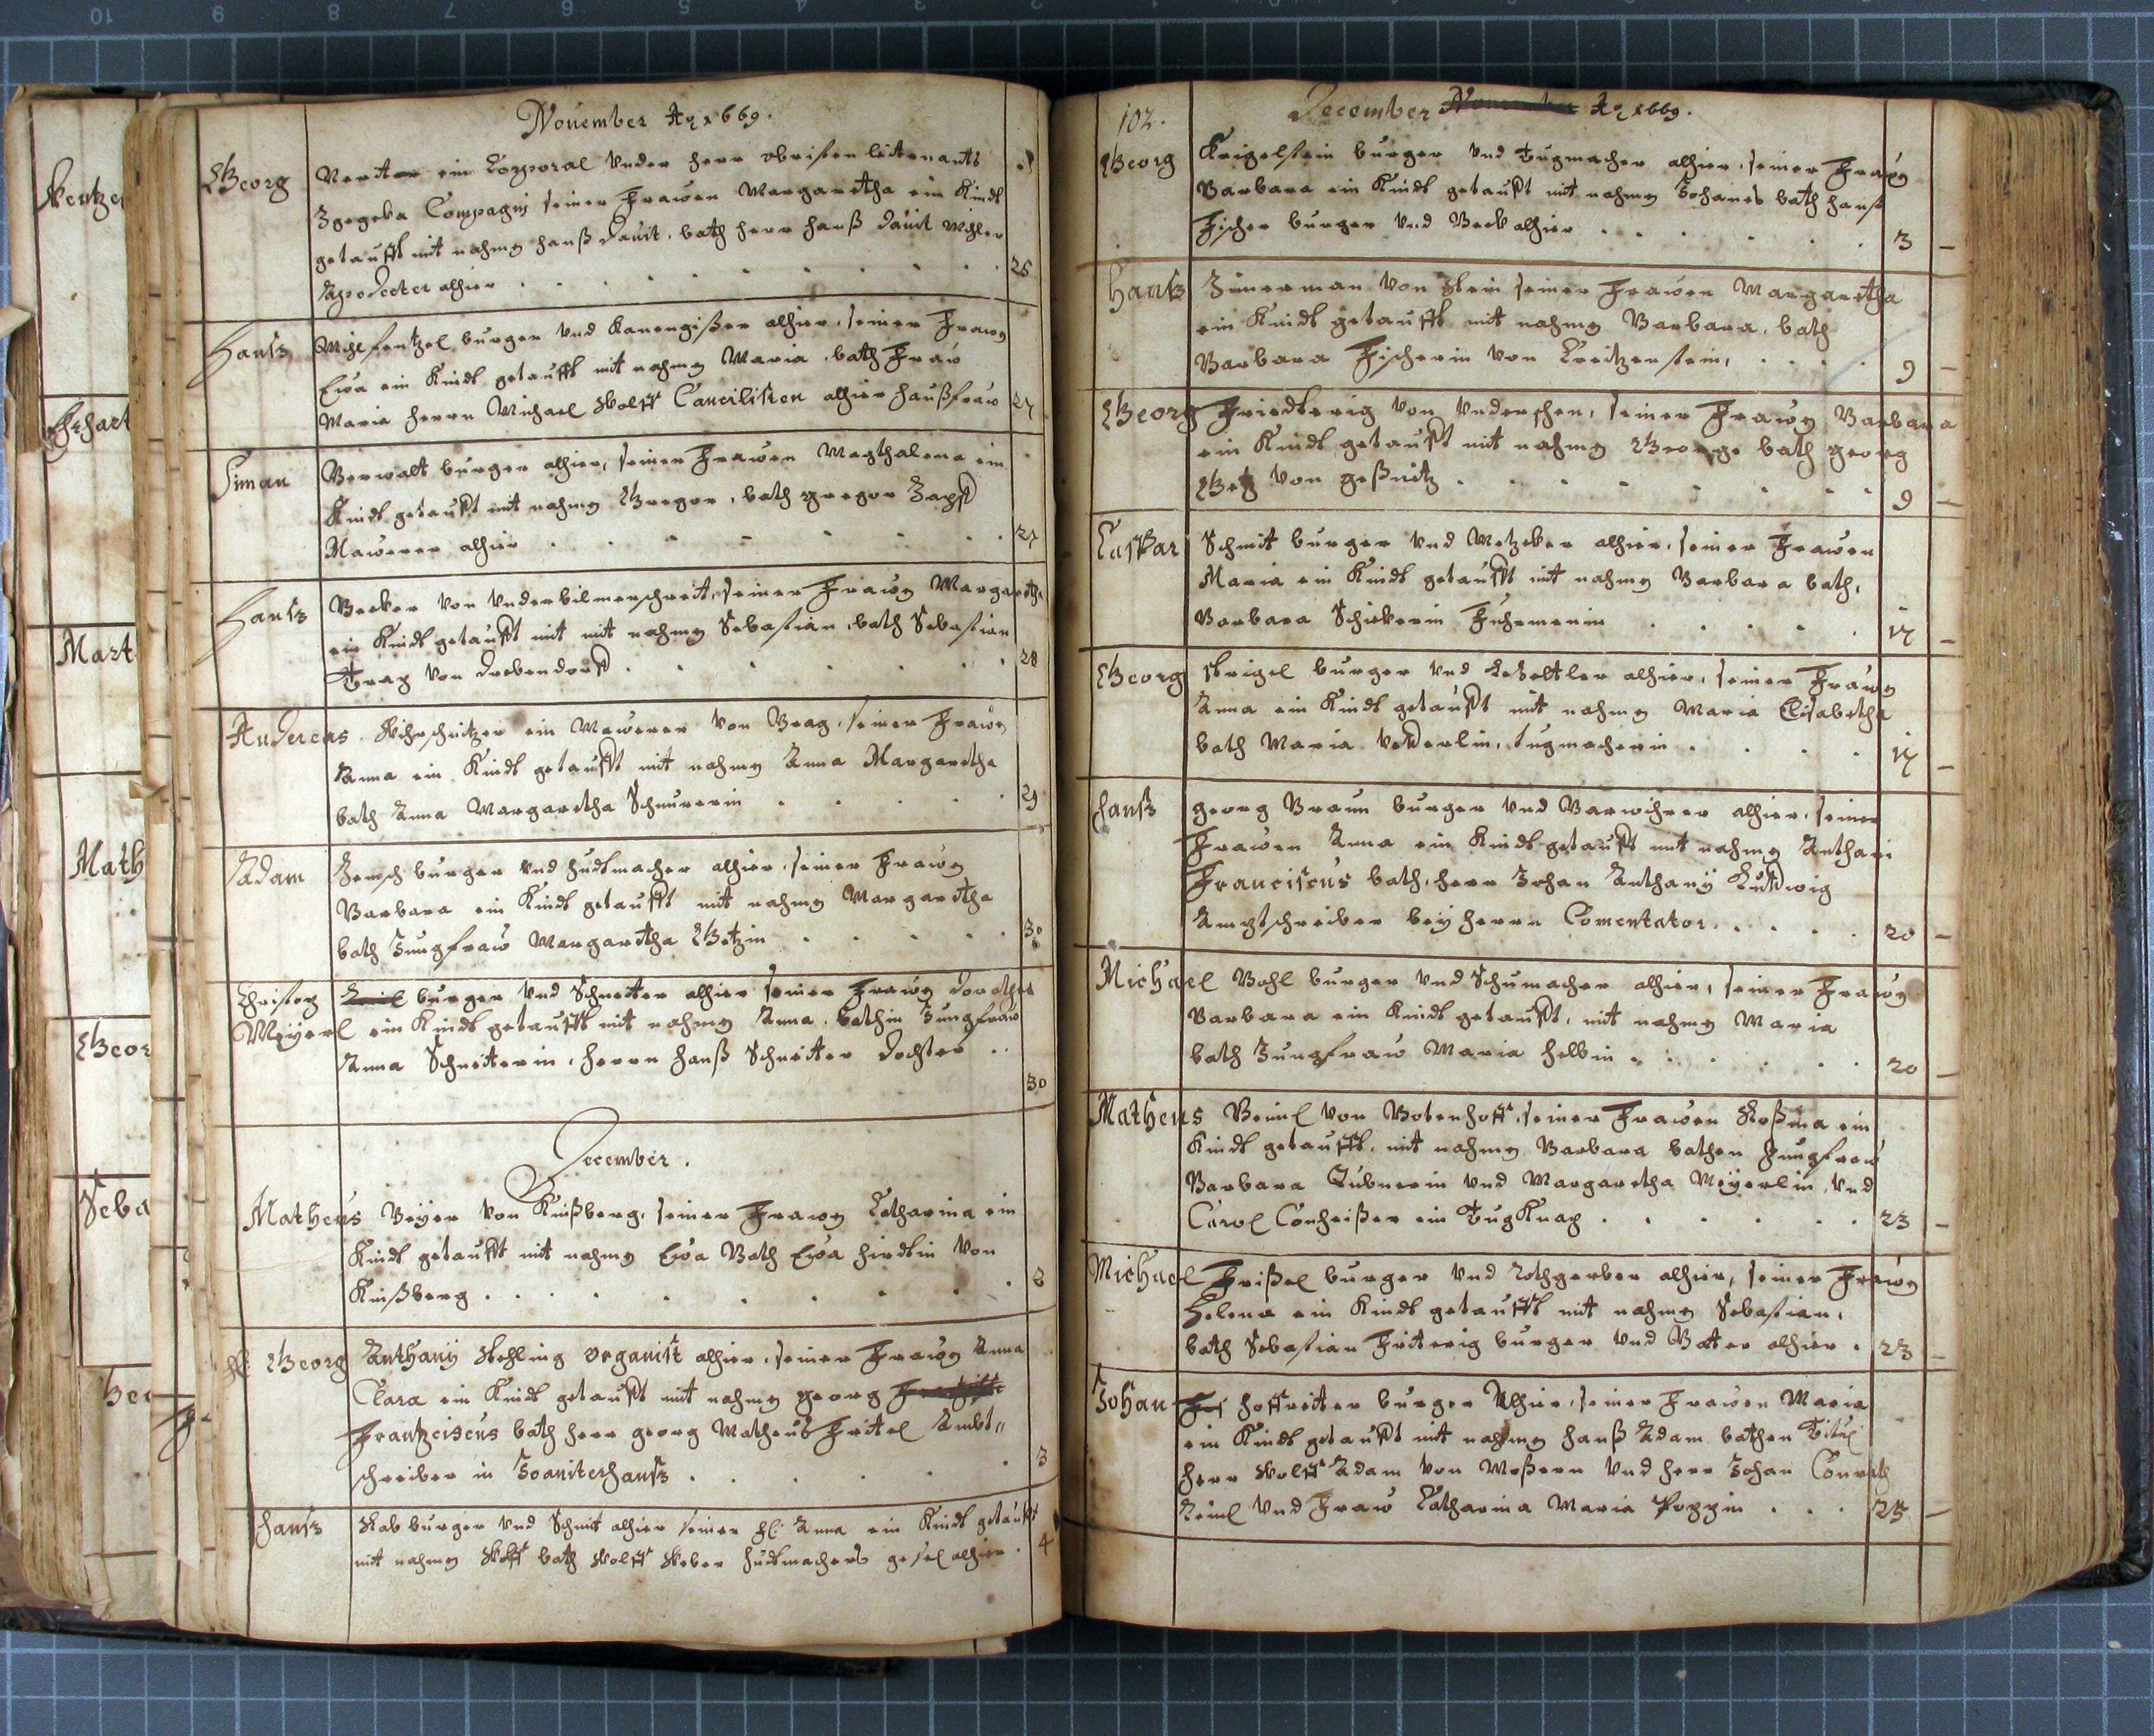 Nouember Ao 1669.
Georg
ein Corporal Vnder herr obristen leitenants
Compagni seiner Frawen Margaretha ein Kindt
getaufft mit nahmen hanß Dauit. bath herr hanß Dauit
Apodecker alhier . . . 25
Hanß
burger vnd Kanengißer alhier, seiner Frawen
Eva ein Kindt getaufft mit nahmen Maria bath Fraw
Maria herrn Michael Wolff Cancilisten alhier haußfraw 27
Siman
Berwalt burger alhier, seiner Frawen Magthalena ein
Kindt getaufft mit nahmen Gregor, bath gregor Zapff
Mawerer alhier . . . 27
Hanß
Becker von Vnderbilmerschreit, seiner Frawen Margaretha
ein Kindt getaufft mit mit nahmen Sebastian, bath Sebastian
von Drebendorff . . . 28
Andereas
ein Mawerer von Brag, seiner Frawen
Anna ein Kindt getaufft mit nahmen Anna Margaretha
bath Anna Margaretha Schnurerin . . . 29
Adam
burger vnd hudtmacher alhier, seiner Frawen
Barbara ein Kindt getaufft mit nahmen Margaretha
bath Jungfraw Margaretha Götzin . . . 30
Christoph burger vnd Schneiter alhier seiner Frawen Dorothea
Meyerl ein Kindt getaufft mit nahmen Anna. bathin Jungfraw
Anna Schneiterin, herrn hanß Schneiter Dochter . .
30
December.
Matheus Beyer von Kinßberg, seiner Frawen Catharina ein
Kindt getaufft mit nahmen Eva Bath Eva hirdtin von
Kinßberg . . . 2
H: Georg Anthany Wehling organist alhier, seiner Frawen Anna
Clara ein Kindt getaufft mit nahmen georg
Frantzciscus bath herr georg Matheus Fritel Ambt"
schreiber in Joaniterhanß . . . 3
Hanß Rab burger vnd Schmit alhier seiner H: Anna ein Kindt getaufft
mit nahmen Wolff bath Wolff Weber hudtmachers gesel alhier . 4
102.
December Nouember Ao 1669.
Georg Krigelstein burger vnd Tugmacher alhier, seiner Frawen
Barbara ein Kindt getaufft mit nahmen Johanes bath hanß
Fischer burger vnd Beck alhier . . . 3
Hanß Zimerman von Stein seiner Frawen Margaretha
ein Kindt getaufft mit nahmen Barbara, bath
Barbara Fischerin von Kreitzenstein, . . . 9
Georg Friedterig von Vnderschon, seiner Frawen Barbara
ein Kindt getaufft mit nahmen George bath georg
Götz von geßnitz . . . 9
Caspar Schmit burger vnd Metzcker alhier, seiner Frawen
Maria ein Kindt getaufft mit nahmen Barbara bath,
Barbara Schickerin Fuhrmenin . . . 17
Georg burger vnd alhier, seiner Frawen
Anna ein Kindt getaufft mit nahmen Maria Elisabetha
bath Maria tugmacherin . . . 17
Hanß georg Braun burger vnd Barwihrer alhier, seiner
Frawen Anna ein Kindt getaufft mit nahmen Anthani
Franciscus bath, herr Johan Anthany Ludwig
Amptschreiber bey herrn Comentator. . . . 20
Michael Pohl burger vnd Schumacher alhier, seiner Frawen
Barbara ein Kindt getaufft, mit nahmen Maria
bath Jungfraw Maria helbin . . . 20
Matheus Beinl von Botenhoff, seiner Frawen Roßina ein
Kindt getaufft, mit nahmen Barbara bathen Jungfraw
Barbara Lübnerin vnd Margaretha Meyerlin, vnd
Carol Conheißer ein Tug Knap . . . 23
Michael Frißel burger vnd Rothgerber alhier, seiner Frawen
Helena ein Kindt getaufft mit nahmen Sebastian,
bath Sebastian Friterig burger vnd Bader alhier . 23
Johan hoffreiter burger Alhier, seiner Frawen Maria
ein Kindt getaufft mit nahmen hanß Adam bathen Titul
herr Wolff Adam von Moßern vnd herr Johan Conrath
Leinl vnd Fraw Catharina Maria Poppin . . . 25